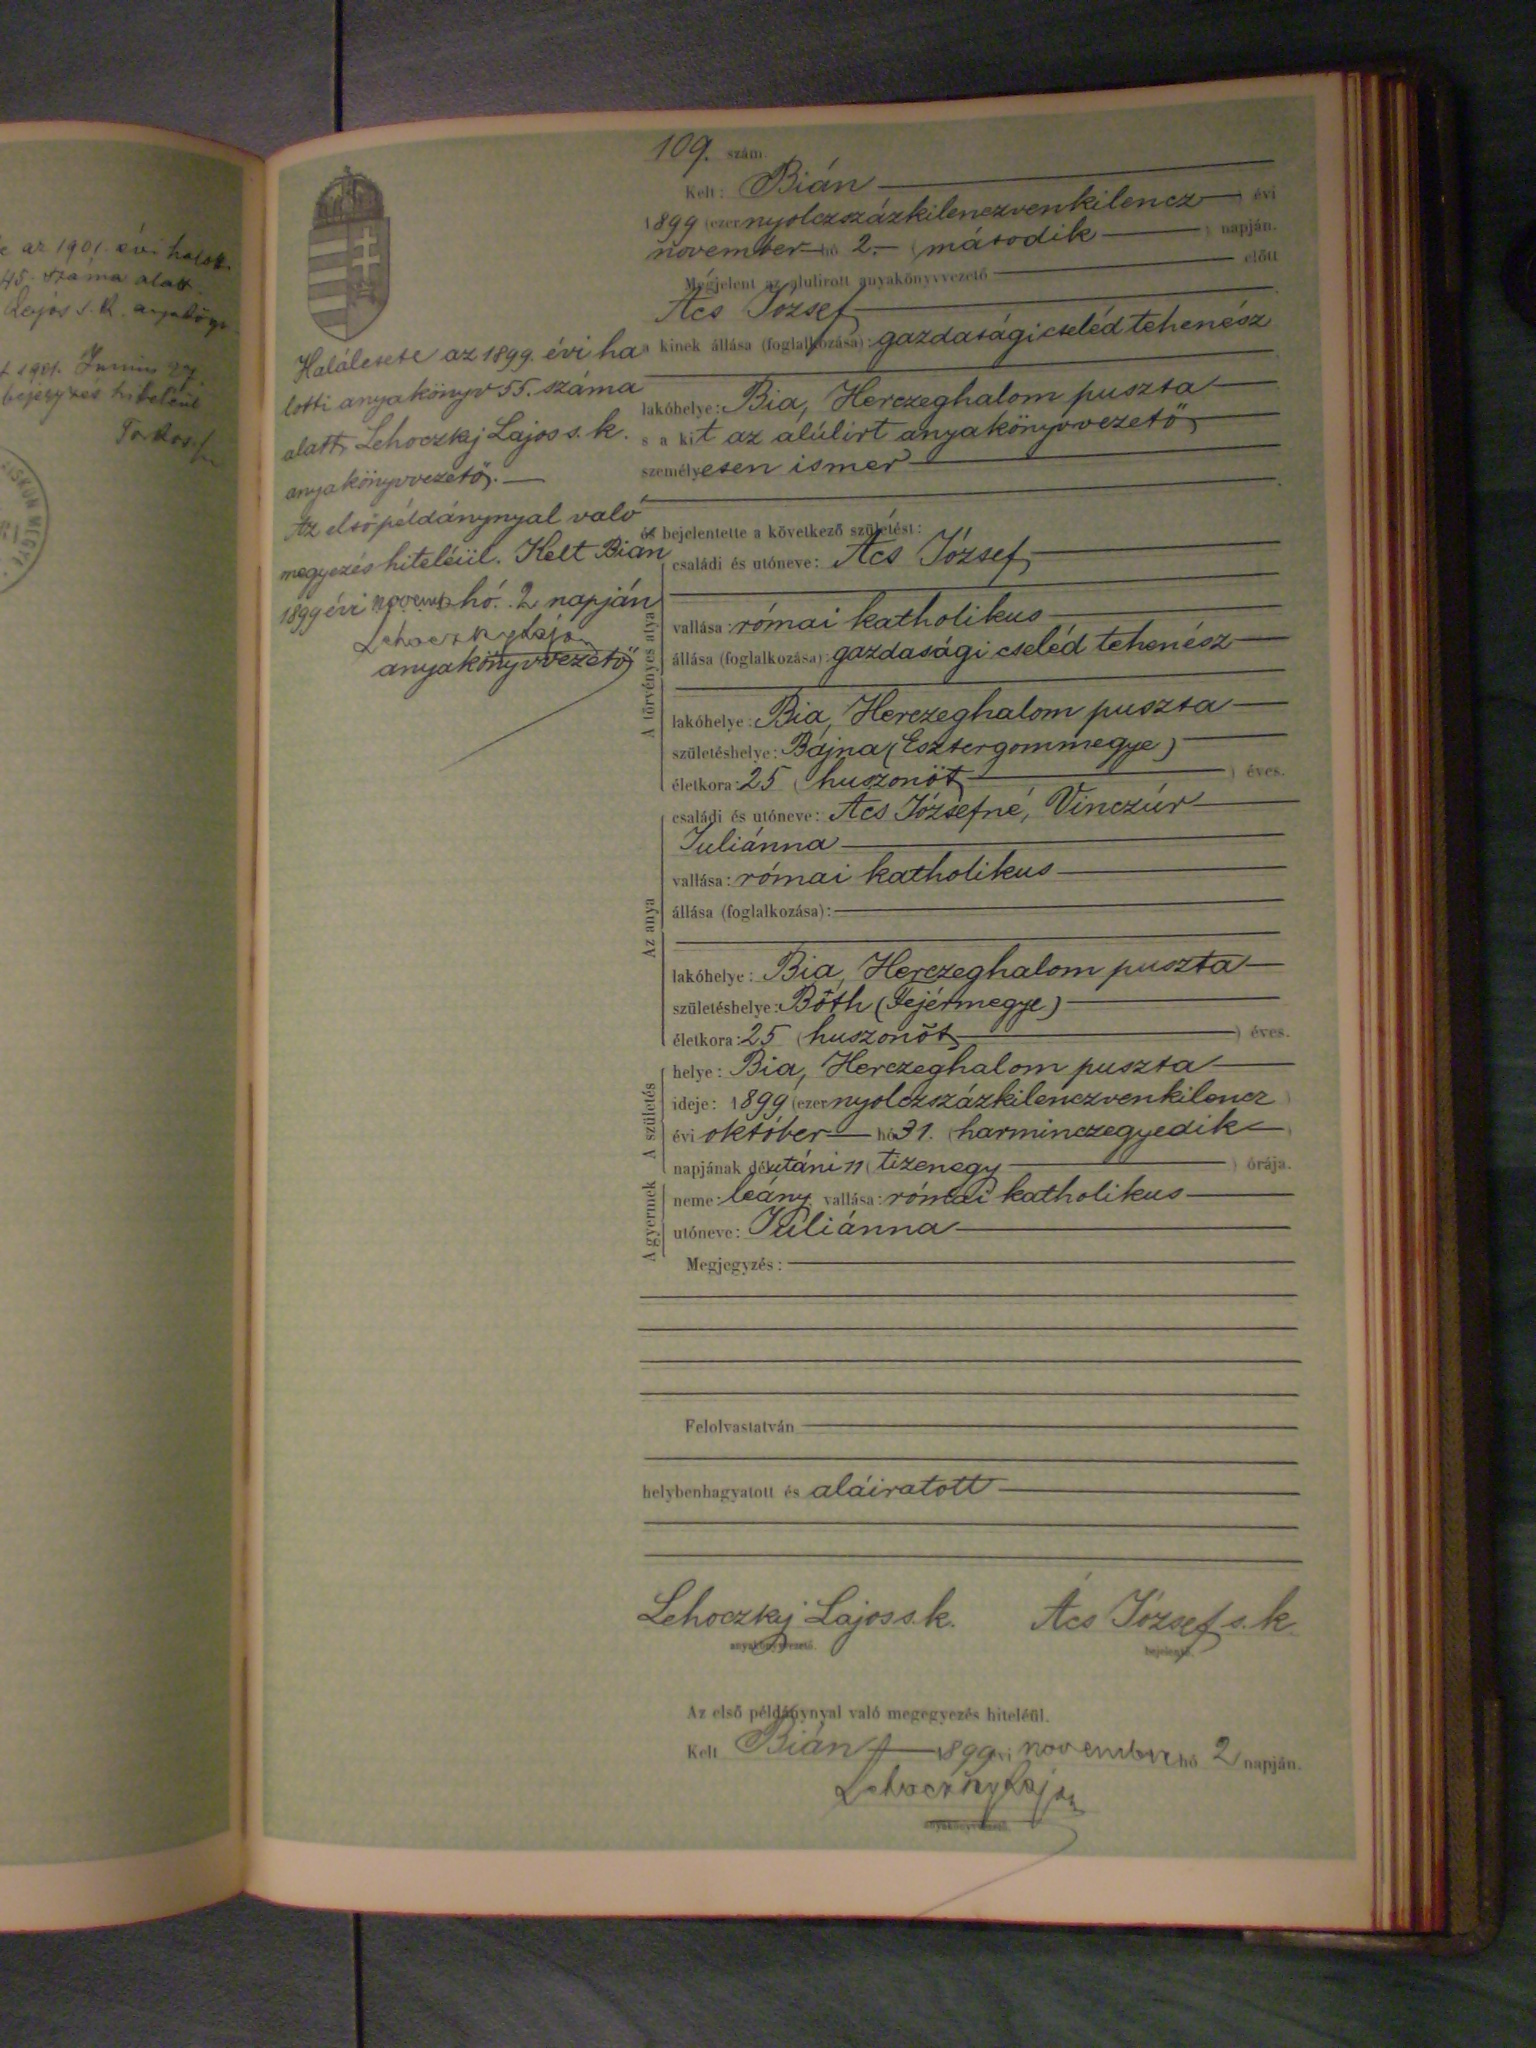 az 1901. évi halott
45. száma alatt
Lajos s. k.
1901. Junius 27
bejegyzés hiteléül
Halálesete az 1899. évi ha
lotti anyakönyv 55. száma
alatt, Lehoczky Lajos s. k.
anyakönyvvezető. —
Az első példánynyal való
megyezés hiteléül. Kelt Bián
1899 évi novemb hó. 2 napján
Lehoczky Lajos
anyakönyvvezető
109. szám
Kelt: Bián
1899 (ezernyolczszázkilenczvenkilencz) évi
november hó 2.– (második) napján.
Megjelent az alulírott anyakönyvvezető előtt
Ács József
a kinek állása (foglalkozása): gazdasági cseléd tehenész
lakóhelye: Bia, Herczeghalom puszta
s a kit az alúlirt anyakönyvvezető
személyesen ismer
és bejelentette a következő születést:
A törvényes atya
családi és utóneve: Ács József
vallása: római katholikus
állása (foglalkozása): gazdasági cseléd tehenész
lakóhelye: Bia, Herczeghalom puszta
születéshelye: Bajna (Esztergommegye)
életkora: 25 (huszonöt) éves.
Az anya
családi és utóneve: Ács Józsefné, Vinczúr
Juliánna
vallása: római katholikus
állása (foglalkozása):
lakóhelye: Bia, Herczeghalom puszta
születéshelye: Bóth (Fejérmegye)
életkora: 25 (huszonöt) éves.
A születés
helye: Bia, Herczeghalom puszta
ideje: 1899 (ezernyolczszázkilenczvenkilencz)
évi október hó 31. (harminczegyedik)
napjának délutáni 11 (tizenegy) órája.
A gyermek
neme: leány vallása: római katholikus
utóneve: Juliánna
Megjegyzés:
Felolvastatván
helybenhagyatott és aláiratott
Lehoczky Lajos s. k. Ács József s. k.
anyakönyvvezető. bejelentő.
Az első példánynyal való megegyezés hiteléül.
Kelt Bián 1899 évi november hó 2 napján.
Lehoczky Lajos
anyakönyvvezető.